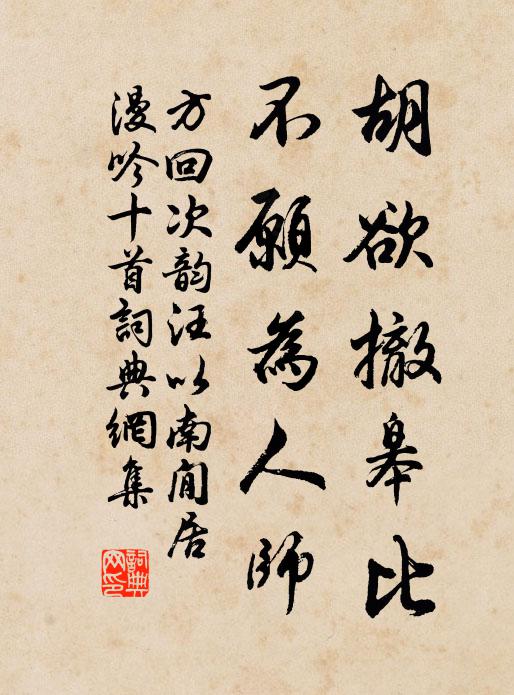 胡欲撤皋比
不願為人師
方回次韵汪以南閒居
漫吟十首詞典網集
詞典
网印